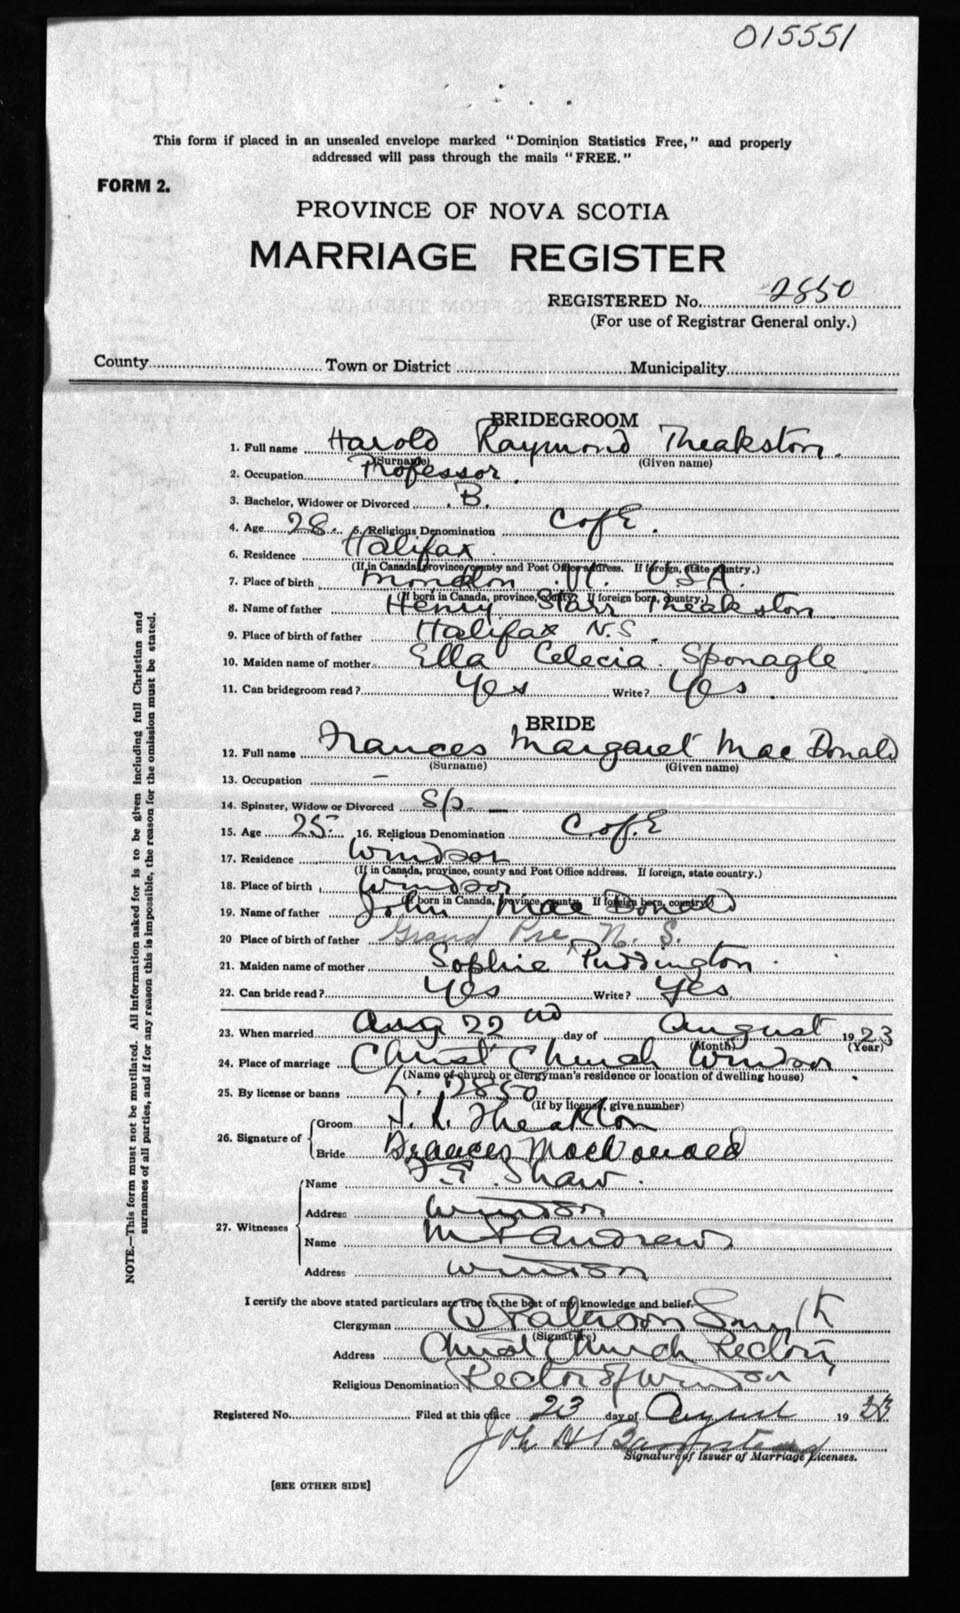 015551
This form if placed in an unsealed envelope marked "Dominion Statistics Free," and properly
addressed will pass through the mails "FREE."
FORM 2.
PROVINCE OF NOVA SCOTIA
MARRIAGE REGISTER
REGISTERED No. 2850
(For use of Registrar General only.)
County Town or District Municipality
BRIDEGROOM
1. Full name Harold Raymond Theakston.
(Surname) (Given name)
2. Occupation Professor.
3. Bachelor, Widower or Divorced B.
4. Age 28 5. Religious Denomination C of E.
6. Residence Halifax
(If in Canada, province, county and Post Office address. If foreign, state country.)
7. Place of birth Vt. U.S.A.
(If born in Canada, province, county. If foreign born, country.)
8. Name of father Henry Starr Theakston
9. Place of birth of father Halifax N.S.
10. Maiden name of mother Ella Celecia Sponagle
11. Can bridegroom read? Yes Write? Yes.
BRIDE
12. Full name Frances Margaret Mac Donald
(Surname) (Given name)
13. Occupation –
14. Spinster, Widow or Divorced S/p. –
15. Age 25 16. Religious Denomination C. of E
17. Residence Windsor
(If in Canada, province, county and Post Office address. If foreign, state country.)
18. Place of birth Windsor
(If born in Canada, province, county. If foreign born, country)
19. Name of father John Mac Donald
20 Place of birth of father Grand Pre, N. S.
21. Maiden name of mother Sophie Puddington
22. Can bride read? Yes Write? Yes
23. When married Aug 22nd day of August 1923
(Month) (Year)
24. Place of marriage Christ Church Windsor.
(Name of church or clergyman's residence or location of dwelling house)
25. By license or banns L. 2850
(If by license, give number)
26. Signature of Groom Theakston
Bride Frances MacDonald
27. Witnesses Name Shaw.
Address Windsor
Name Andrews
Address Windsor
I certify the above stated particulars are true to the best of my knowledge and belief.
Clergyman Paterson Smyth
(Signature)
Address Christ Church Rectory
Religious Denomination Rector of Windsor
Registered No. Filed at this office 23 day of August 19
Signature of Issuer of Marriage Licenses.
[SEE OTHER SIDE]
NOTE.—This form must not be mutilated. All information asked for is to be given including full Christian and
surnames of all parties, and if for any reason this is impossible, the reason for the omission must be stated.